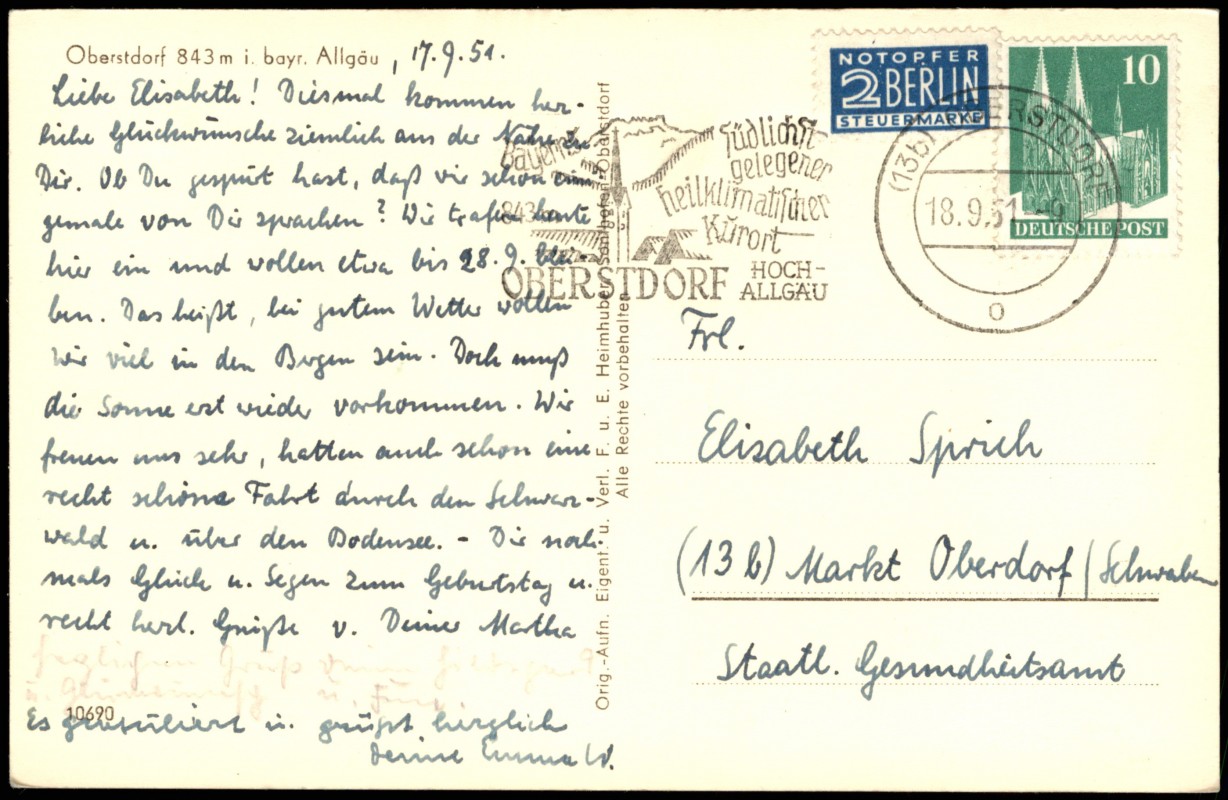 Oberstdorf 843 m i. bayr. Allgäu, 17.9.51.
Liebe Elisabeth! Diesmal kommen herz-
liche Glückwünsche ziemlich aus der Nähe zu
Dir. Ob Du gespürt hast, daß wir schon ein-
gemale von Dir sprachen? Wir trafen heute
hier ein und wollen etwa bis 28.9. blei-
ben. Das heißt, bei gutem Wetter wollen
wir viel in den Bergen sein. Doch muß
die Sonne erst wieder vorkommen. Wir
freuen uns sehr, hatten auch schon eine
recht schöne Fahrt durch den Schwarz-
wald u. über den Bodensee. - Dir noch-
mals Glück u. Segen zum Geburtstag u.
recht herzl. Grüße v. Deiner Martha
Gruß
u. u.
10690
Es gratuliert u. grüßt herzlich
Deine Emma W.
Orig.-Aufn. Eigent. u. Verl. F. u. E. Heimhuber, Sonthofen-Oberstdorf
Alle Rechte vorbehalten
Bayerns
843 m
südlichst
gelegener
heilklimatischer
Kurort
OBERSTDORF
HOCH-
ALLGÄU
NOTOPFER
2 BERLIN
STEUERMARKE
10
DEUTSCHE POST
(13b) OBERSTDORF
18.9.51.-9
o
Frl.
Elisabeth Sprich
(13b) Markt Oberdorf / Schwaben
Staatl. Gesundheitsamt